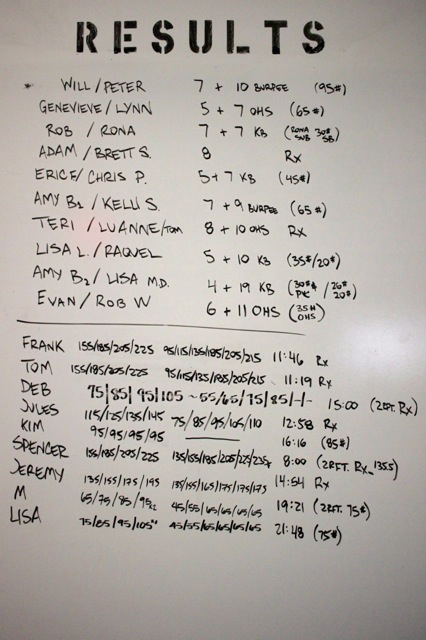 RESULTS
* WILL/PETER 7 + 10 BURPEE (95#)
GENEVIEVE/LYNN 5 + 7 OHS (65#)
ROB / RONA 7 + 7 KB (RONA SUB 30# SB)
ADAM / BRETT S. 8 Rx
ERICE/ CHRIS P. 5+7 KB (45#)
AMY B1 / KELLI S. 7 + 9 BURPEE (65#)
TERI / LUANNE/TOM 8 + 10 OHS Rx
LISA L. / RAQUEL 5 + 10 KB (35#/20#)
AMY B2 / LISA M.D. 4 + 19 KB (30# PK / 26# 20#)
EVAN / ROB W 6 + 11 OHS (35# OHS)
FRANK 155/185/205/225 95/115/135/185/205/215 11:46 Rx
TOM 155/185/205/225 95/115/135/185/205/215 11:19 Rx
DEB 75/85/95/105 ~ 55/65/75/85/-/- 15:00 (2RFT. Rx)
JULES 115/125/135/145 75/85/95/105/110 12:58 Rx
KIM 95/95/95/95 16:16 (85#)
SPENCER 155/185/205/225 8:00 (2RFT. Rx 135#)
JEREMY 135/155/175/195 135/155/165/175/175/175 14:54 Rx
M 65/75/85/95 45/55/65/65/65/65 19:21 (2RFT. 75#)
LISA 75/85/95/105 45/55/65/65/65/65 21:48 (75#)